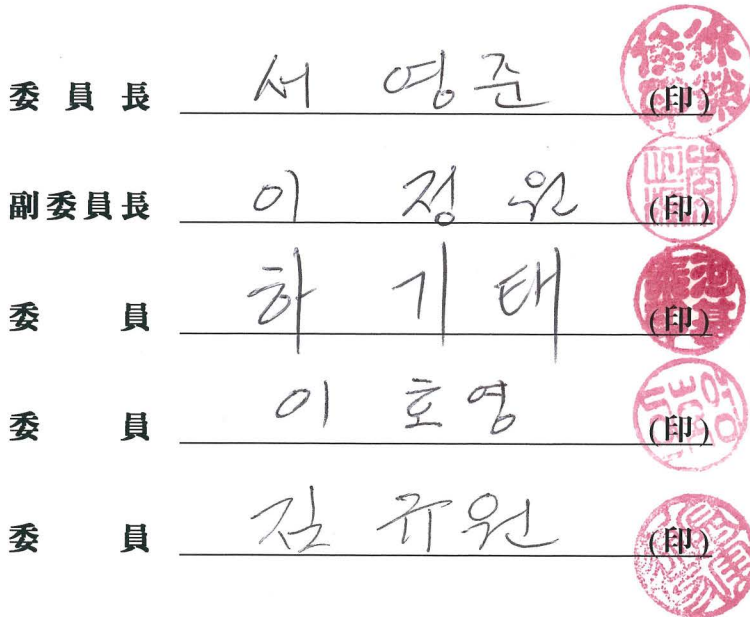 委員長 서 영준 (印)
副委員長 이 정원 (印)
委員 하 기 태 (印)
委員 이 호영 (印)
委員 김 규원 (印)